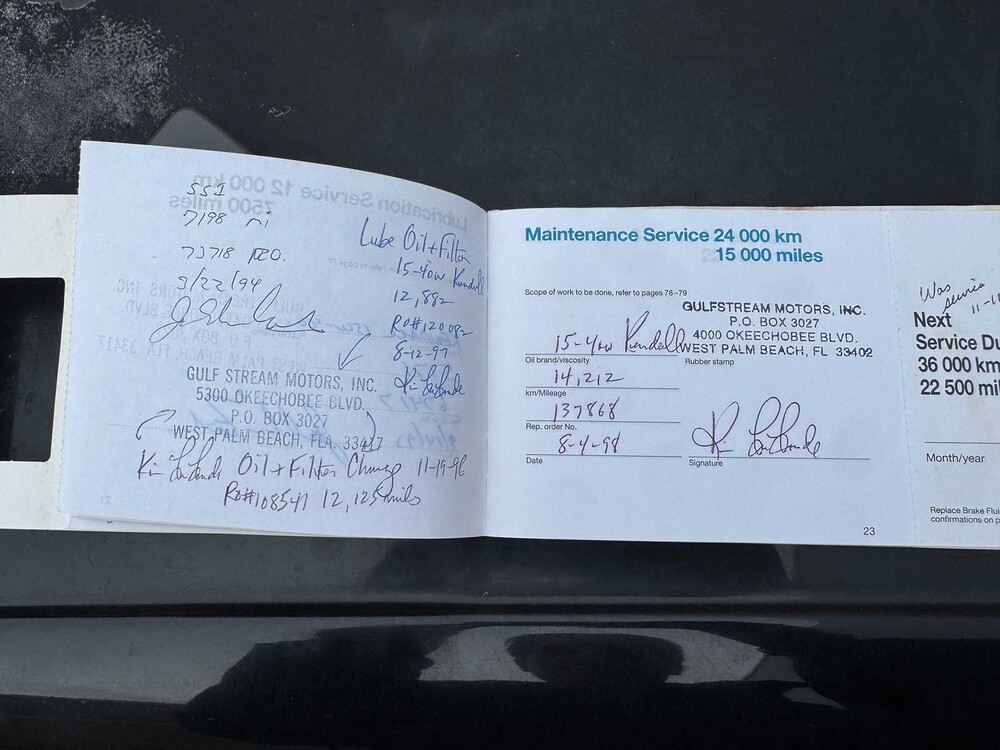 SSI
7198 mi
73718 RO.
3/22/94
Lube Oil + Filter
15-40W Kendall
12,882
Ro#120082
8-12-97
GULF STREAM MOTORS, INC.
5300 OKEECHOBEE BLVD.
P.O. BOX 3027
WEST PALM BEACH, FLA. 33417
Oil + Filter Change 11-19-96
Ro#108541 12,125 miles
Lubrication Service 12 000 km
7500 miles
Maintenance Service 24 000 km
15 000 miles
Scope of work to be done, refer to pages 78–79
GULFSTREAM MOTORS, INC.
P.O. BOX 3027
4000 OKEECHOBEE BLVD.
WEST PALM BEACH, FL 33402
15-40W Kendall
Oil brand/viscosity
Rubber stamp
14,212
km/Mileage
137868
Rep. order No.
8-4-98
Date
Signature
23
Was
service
Next
Service Du
36 000 km
22 500 mil
Month/year
Replace Brake Flui
confirmations on p